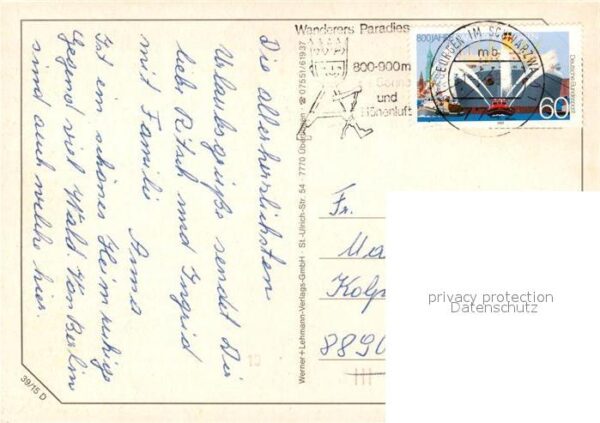 Die allerherzlichsten
Urlaubsgrüße sendet Dir
liebe R und Ingrid
mit Familie Anna
Ist ein schönes Heim ruhige
Gegend viel Wald. Von Berlin
sind auch welche hier.
39/15 D
Werner+Lehmann-Verlags-GmbH · St.-Ulrich-Str. 54 · 7770 Überlingen · ☎ 07551/61937
Wanderers Paradies
800-900m
Sonne
und
Höhenluft
ST GEORGEN IM SCHWARZWA
mb
800 JAHRE
Deutsche Bundespost
60
Fr.
Ma
Kolp
8890
privacy protection
Datenschutz